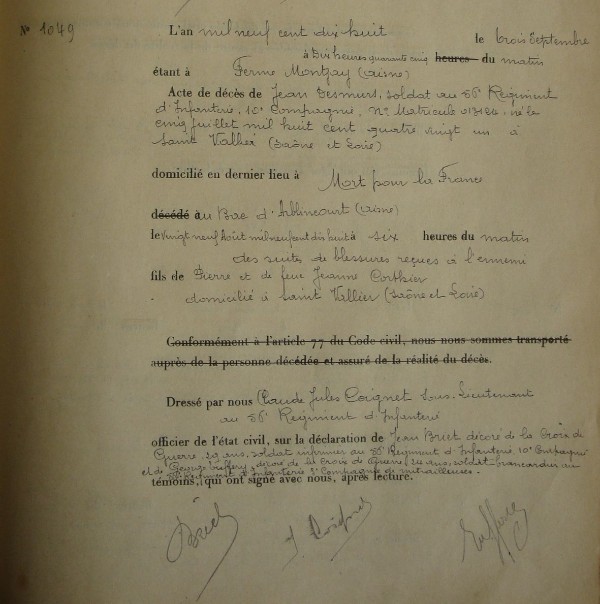 N° 1049
L'an mil neuf cent dix huit le trois Septembre
à dix heures quarante cinq heures du matin
étant à Ferme Montjay (Aisne)
Acte de décès de Jean Desmurs, soldat au 86e Régiment
d'Infanterie, 10e Compagnie, No Matricule né le
cinq juillet mil huit cent quatre vingt un à
Saint Vallier (Saône et Loire)
domicilié en dernier lieu à Mort pour la France
décédé au Bac d'Arblincourt (Aisne)
le vingt neuf Août mil neuf cent dix huit à six heures du matin
des suites de blessures reçues à l'ennemi
fils de Pierre et de feue Jeanne Corthier
domicilié à Saint Vallier (Saône et Loire)
Conformément à l'article 77 du Code civil, nous nous sommes transporté
auprès de la personne décédée et assuré de la réalité du décès.
Dressé par nous Claude Jules Coignet Sous-Lieutenant
au 86e Régiment d'Infanterie
officier de l'état civil, sur la déclaration de Jean décoré de la Croix de
Guerre, 29 ans, soldat infirmier au 86e Régiment d'Infanterie, 10e Compagnie
et de George décoré de la Croix de Guerre, 24 ans, soldat brancardier au
Régiment d'Infanterie 3e Compagnie de mitrailleuses.
témoins, (qui ont signé avec nous, après lecture.
J. Coignet